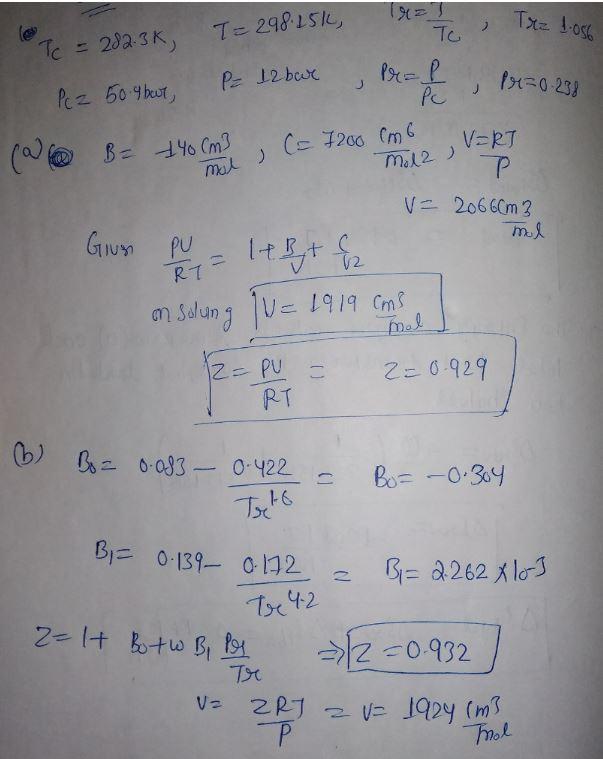 Tc = 282.3K, T = 298.15K, Tr = T/Tc, Tr = 1.056
Pc = 50.4bar, P = 12bar, Pr = P/Pc, Pr = 0.238
(a) B = -140 cm3/mol, C = 7200 cm6/mol2, V = RT/P
V = 2066 cm3/mol
Given PV/RT = 1 + B/V + C/V2
on solving V = 1919 cm3/mol
Z = PV/RT = Z = 0.929
(b) B0 = 0.083 - 0.422/Tr1.6 = B0 = -0.304
B1 = 0.139 - 0.172/Tr4.2 = B1 = 2.262 x 10-3
Z = 1 + B0 + w B1 Pr/Tr ⇒ Z = 0.932
V = ZRT/P = V = 1924 cm3/mol